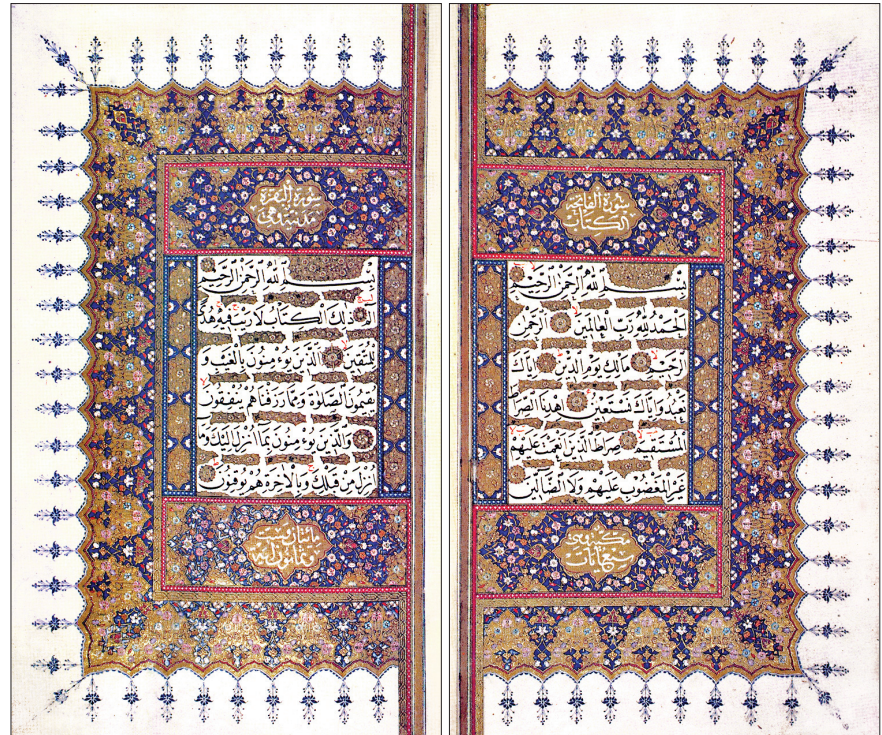 سورة الفاتحة
الكتاب
بِسْمِ اللّٰهِ الرَّحْمٰنِ الرَّحِيمِ
اَلْحَمْدُ لِلّٰهِ رَبِّ الْعَالَمِينَ اَلرَّحْمٰنِ
الرَّحِيمِ مَالِكِ يَوْمِ الدِّينِ اِيَّاكَ
نَعْبُدُ وَاِيَّاكَ نَسْتَعِينُ اِهْدِنَا الصِّرَاطَ
الْمُسْتَقِيمَ صِرَاطَ الَّذِينَ اَنْعَمْتَ عَلَيْهِمْ
غَيْرِ الْمَغْضُوبِ عَلَيْهِمْ وَلَا الضَّالِّينَ
مكية وهى
سبع ايات
سورة البقرة
مدنية وهى
بِسْمِ اللّٰهِ الرَّحْمٰنِ الرَّحِيمِ
الٓمٓ ذٰلِكَ الْكِتَابُ لَا رَيْبَ فِيهِ هُدًى
لِلْمُتَّقِينَ اَلَّذِينَ يُؤْمِنُونَ بِالْغَيْبِ وَ
يُقِيمُونَ الصَّلٰوةَ وَمِمَّا رَزَقْنَاهُمْ يُنْفِقُونَ
وَالَّذِينَ يُؤْمِنُونَ بِمَا اُنْزِلَ اِلَيْكَ وَمَا
اُنْزِلَ مِنْ قَبْلِكَ وَبِالْاٰخِرَةِ هُمْ يُوقِنُونَ
مائتان وست
وثمانون اية